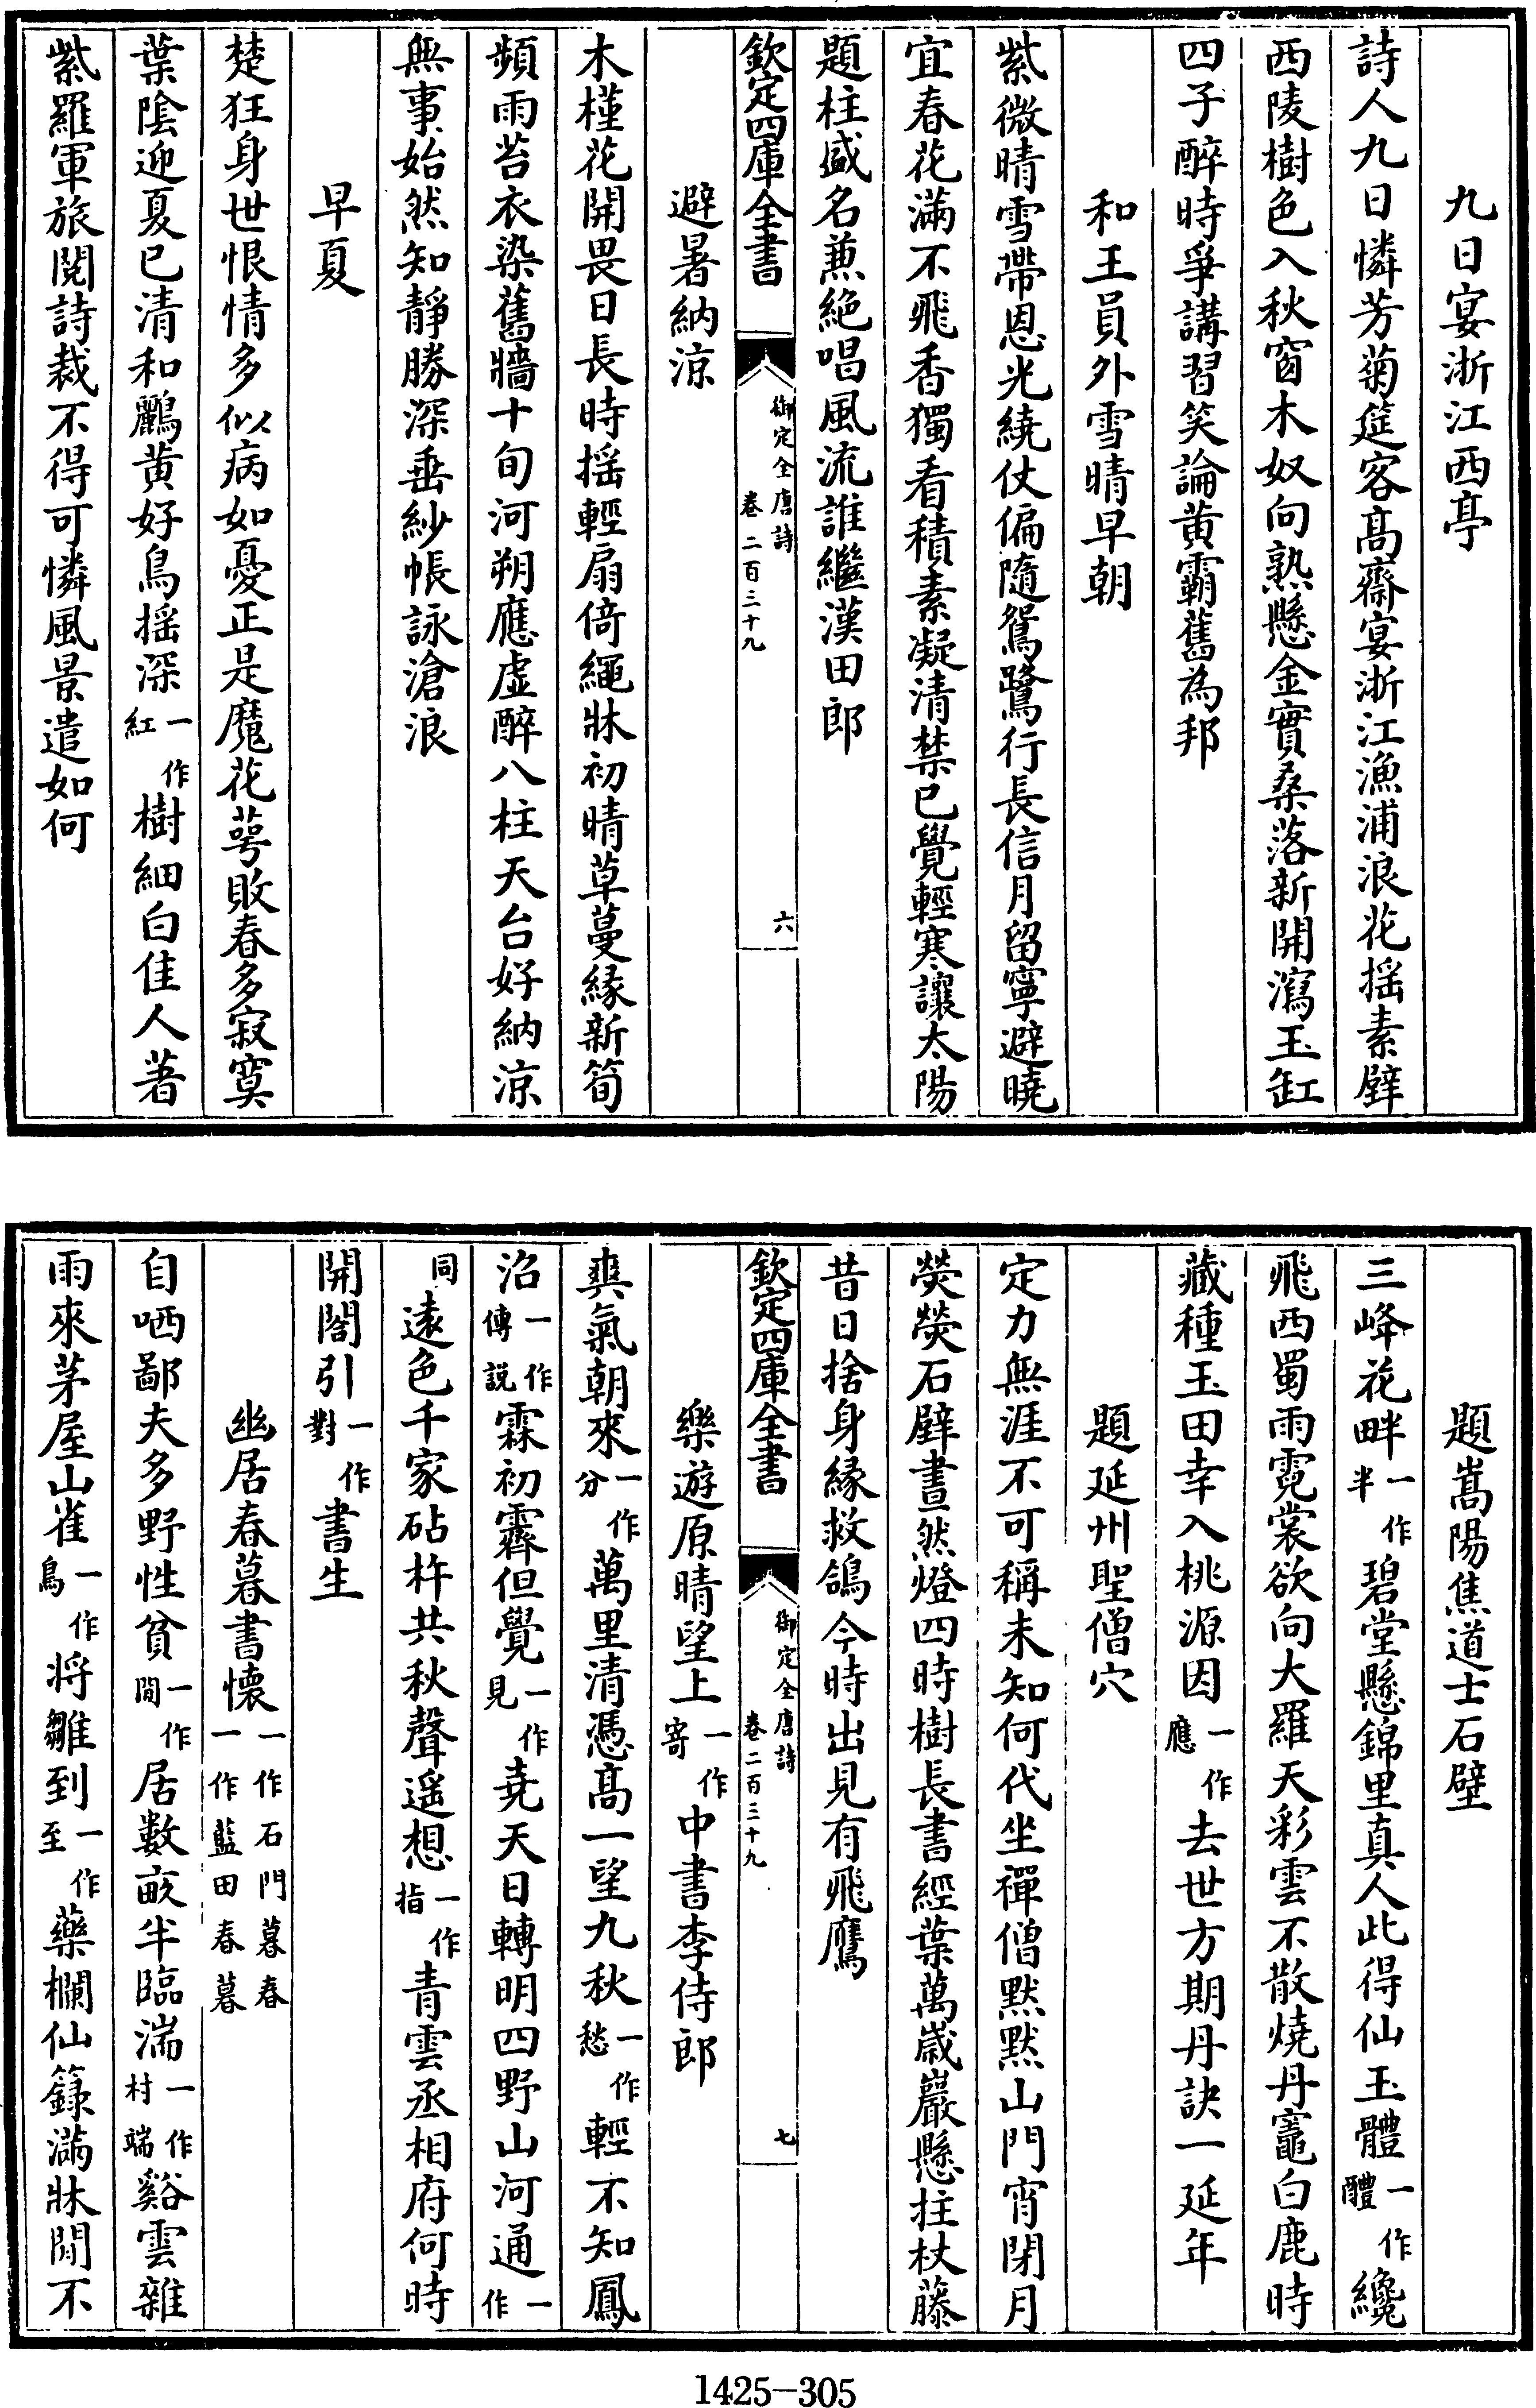 九日宴浙江西亭
詩人九日憐芳菊筵客髙齋宴浙江漁浦浪花揺素壁
西陵樹色入秋窗木奴向熟懸金實桑落新開瀉玉缸
四子醉時爭講習笑論黄霸舊為邦
和王員外雪晴早朝
紫微晴雪帶恩光繞仗偏隨鴛鷺行長信月留寧避曉
宜春花滿不飛香獨看積素凝清禁已覺輕寒讓太陽
題柱盛名兼絶唱風流誰繼漢田郎
欽定四庫全書
御定全唐詩
卷二百三十九
六
避暑納涼
木槿花開畏日長時揺輕扇倚繩牀初晴草蔓緣新筍
頻雨苔衣染舊牆十旬河朔應虚醉八柱天台好納涼
無事始然知靜勝深垂紗帳詠滄浪
早夏
楚狂身世恨情多似病如憂正是魔花萼敗春多寂寞
葉陰迎夏已清和鸝黄好鳥揺深一作紅樹細白佳人著
紫羅軍旅閱詩裁不得可憐風景遣如何
題嵩陽焦道士石壁
三峰花畔一作半碧堂懸錦里真人此得仙玉體一作醴纔
飛西蜀雨霓裳欲向大羅天彩雲不散燒丹竈白鹿時
藏種玉田幸入桃源因一作應去世方期丹訣一延年
題延州聖僧穴
定力無涯不可稱未知何代坐禪僧默默山門宵閉月
熒熒石壁晝然燈四時樹長書經葉萬歲巖懸拄杖藤
昔日捨身緣救鴿今時出見有飛鷹
欽定四庫全書
御定全唐詩
卷二百三十九
七
樂遊原晴望上一作寄中書李侍郎
爽氣朝來一作分萬里清憑髙一望九秋一作愁輕不知鳳
沼一作傳説霖初霽但覺一作見堯天日轉明四野山河通一作
同逺色千家砧杵共秋聲遥想一作指青雲丞相府何時
開閤引一作對書生
幽居春暮書懷一作石門暮春一作藍田春暮
自哂鄙夫多野性貧一作閒居數畝半臨湍一作村端谿雲雜
雨來茅屋山雀一作鳥將雛到一作至藥欄仙籙滿牀閒不
1425-305